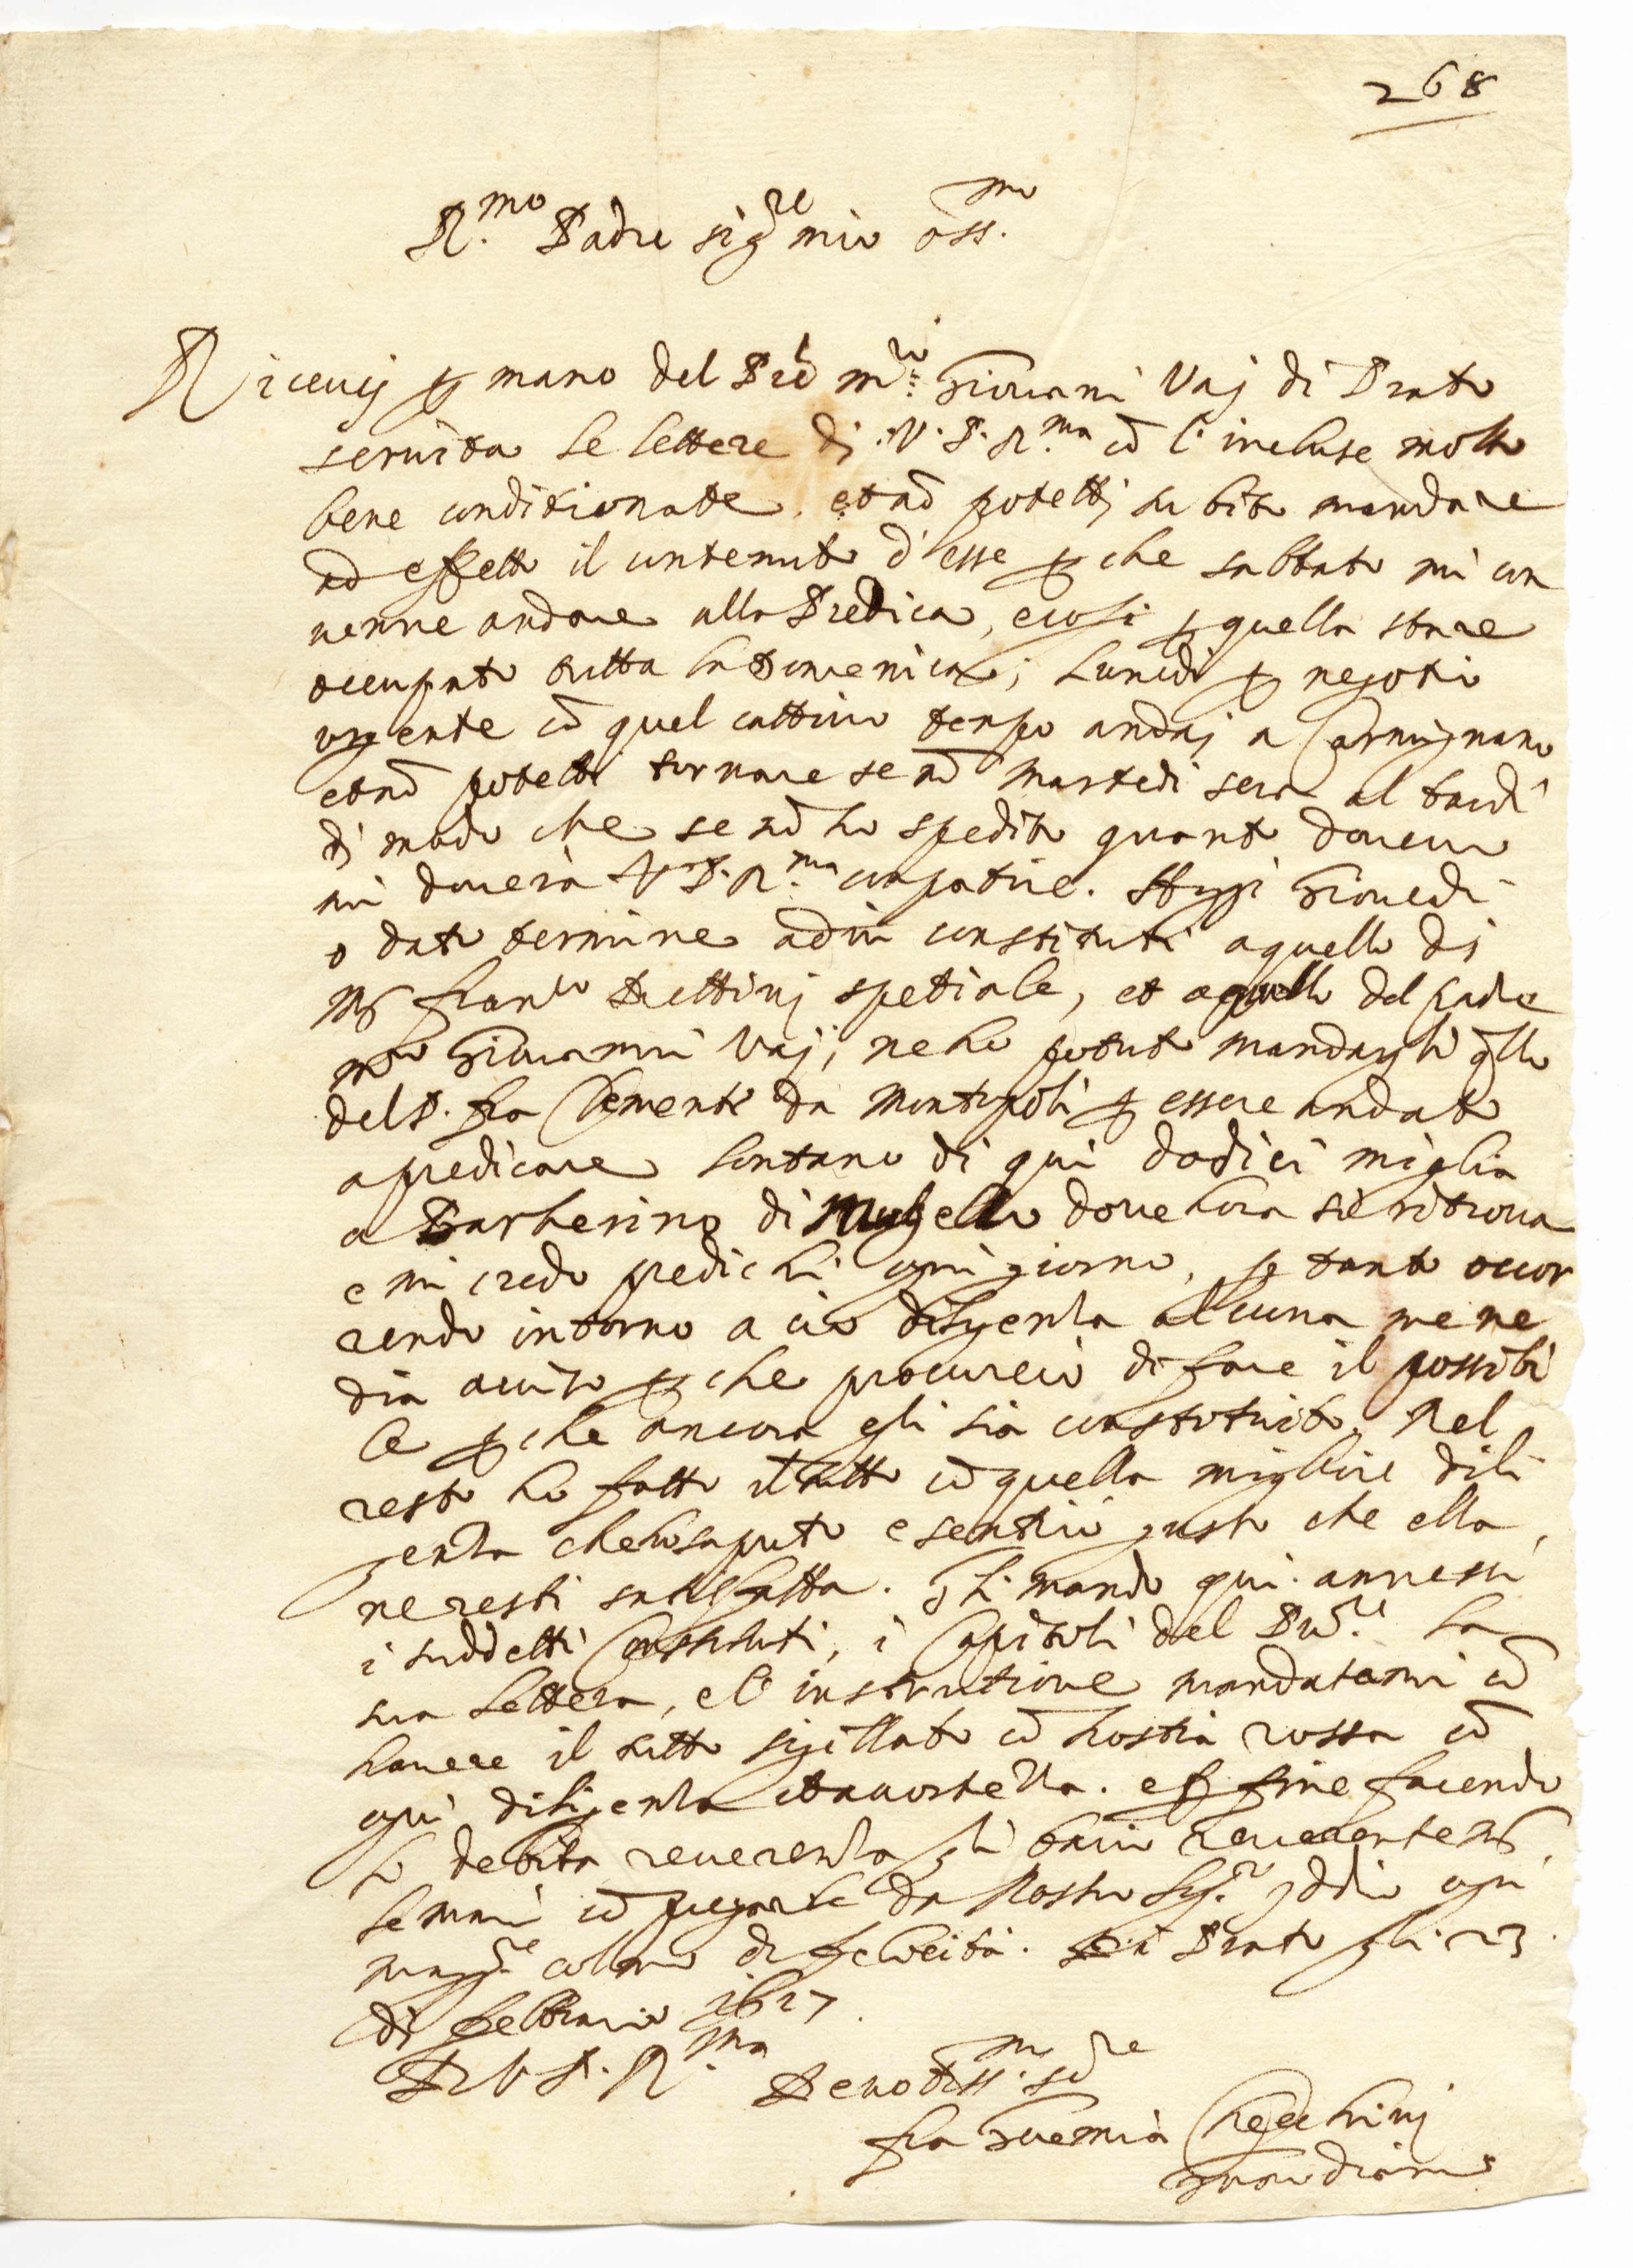 268
R.mo Padre sig.re mio oss.mo
Ricevej p mano del Prē m.ro Giovanni Vaj di Prato
le lettere di V. P. R.ma cō l'incluse molto
bene conditionate, et nō potettj subito mandare
ad effetto il contenuto d'esse p che sabbato mi con
venne andare alla Predica, e cosi p quella stare
occupato tutta la Domenica; Lunedi p negotio
urgente cō quel cattivo tempo andaj a Carmignano
et nō potetti tornare se nō Martedi sera al tardi
di modo che se nō ho spedito quanto dovevo
mi doverà V. P. R.ma compatire. Hoggi Giovedi
o dato termine a dui constituti a quello di
M Fran.co spetiale, et a quello del padre
m.ro Giovanni Vaj; ne ho potuto mandargli qllo
del P. fra Clemente da Montopoli p essere andato
a predicare lontano di qui dodici miglia
a Barberino di Mugello dove hora si ritrova
e mi credo predichi ogni giorno, p tanto occor
rendo intorno a ciò diligenza alcuna me ne
dia aviso p che procurerò di fare il possibi
le p che ancora egli sia constituito. Nel
resto ho fatto il tutto cō quella migliore dili
genza che ho saputo e sentirò gusto che ella
ne resti satisfatta. Gli mando qui annessi
i suddetti Constituti, i Capitoli del la
sua lettera, e l'instrutione mandatami cō
havere il tutto sigillato cō hostia rossa cō
ogni diligenza. e p fine facendo
la debita reverenza gli bacio
cō pregarle da Nostro Sig.r Iddio ogni
magg.re colmo di felicità. Prato gli 23
di Febbraio 1627
D V. P. R.ma
Devotiss.mo se.re
fra Gieremia Checchinj
Guardiano